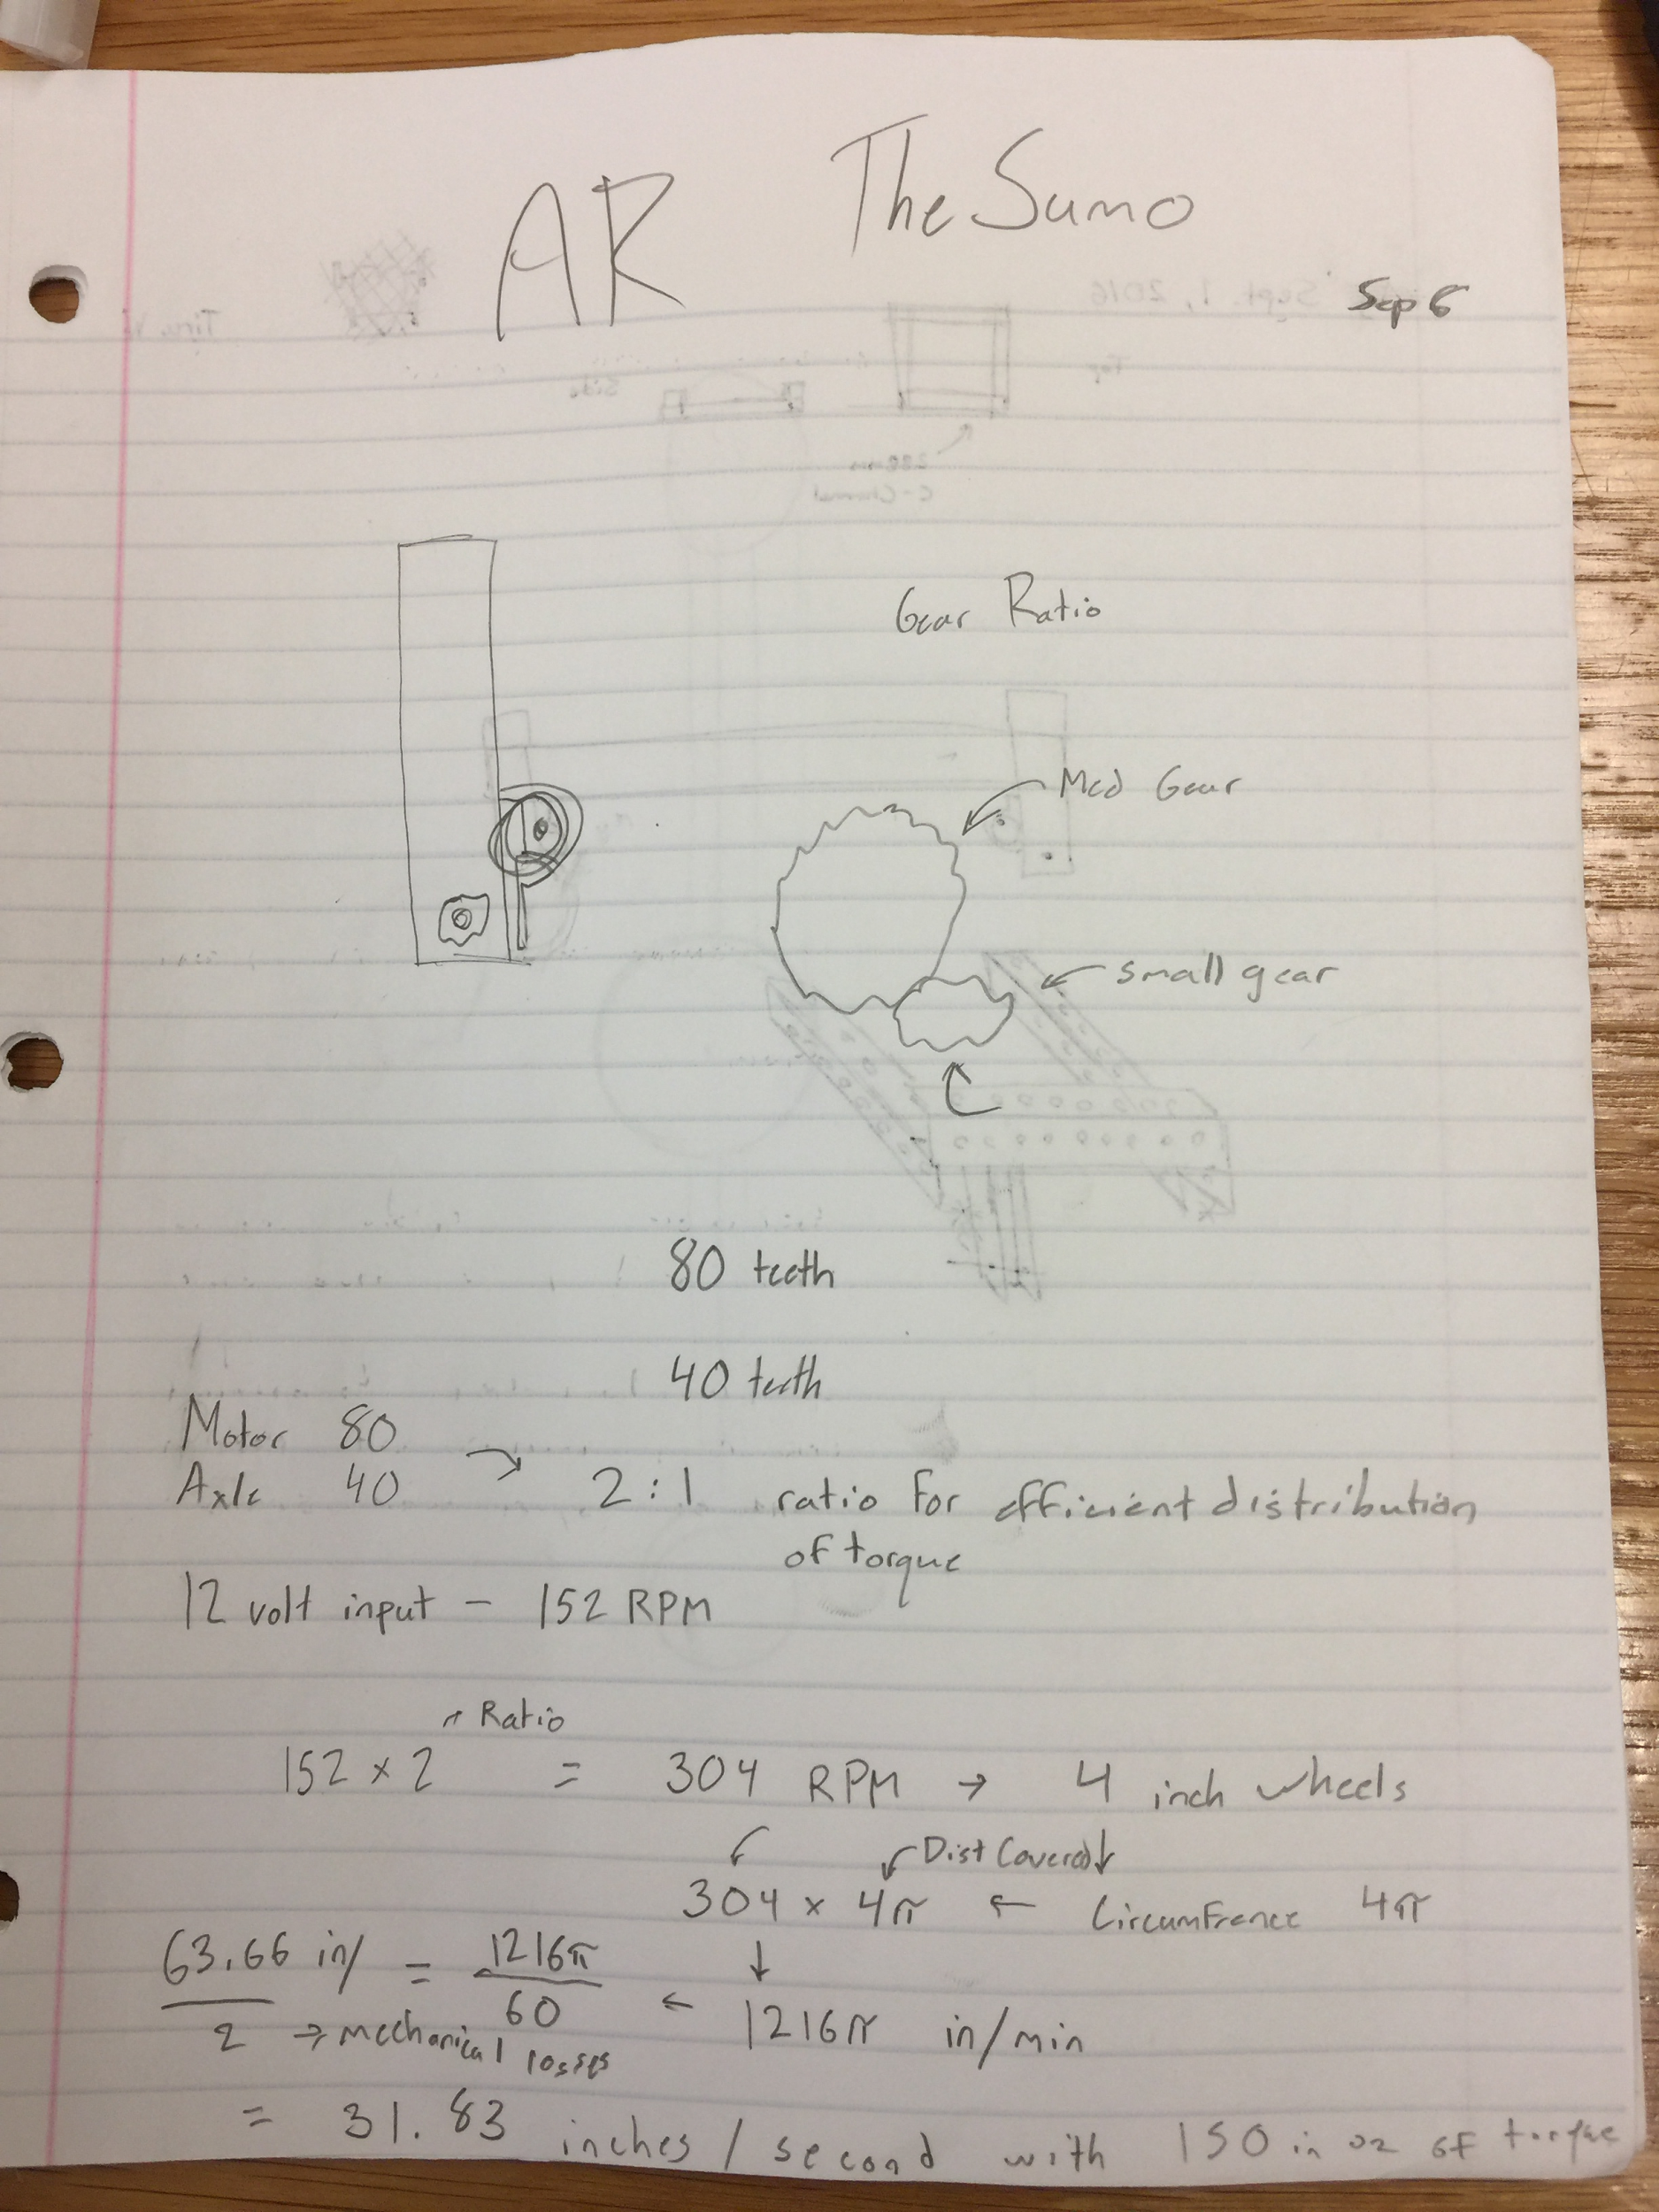 AR The Sumo
Sep 6
Gear Ratio
Med Gear
small gear
80 teeth
40 teeth
Motor 80
Axle 40 → 2:1 ratio for efficient distribution
of torque
12 volt input - 152 RPM
↱ Ratio
152 x 2 = 304 RPM → 4 inch wheels
Dist Covered
304 x 4π ← Circumfrence 4π
63.66 in/ = 1216π
2 → mechanical losses
60 ← 1216π in/min
= 31.83 inches / second with 150 in oz of torque